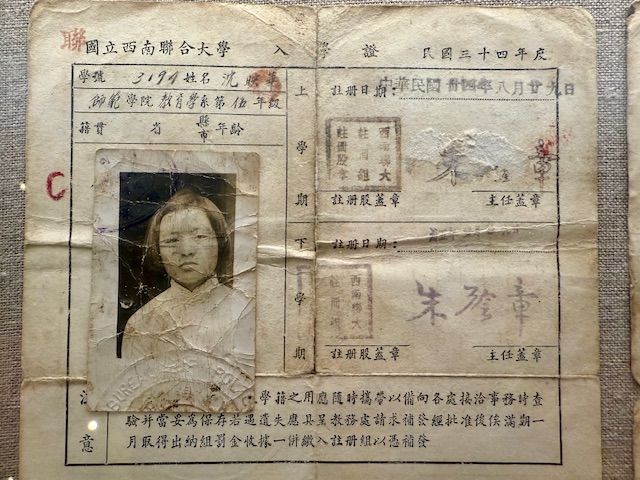 聯
國立西南聯合大學 入學證 民國三十四年度
學號 3194 姓名 沈
師範學院 教育學系第伍年級
籍貫 省 縣市 年齡
C
上學期
註册日期：中華民國卅四年八月廿九日
西南聯大註册組註册股章
章
註册股蓋章 主任蓋章
下學期
註册日期：
西南聯大註册組
朱 章
註册股蓋章 主任蓋章
意
學籍之用應隨時攜帶以備向各處接洽事務時查
驗并當妥為保存若遇遺失應具教務處請求補發經批准後俟滿期一
月取得出納組罰金收據一併繳呈入註册組以憑補發